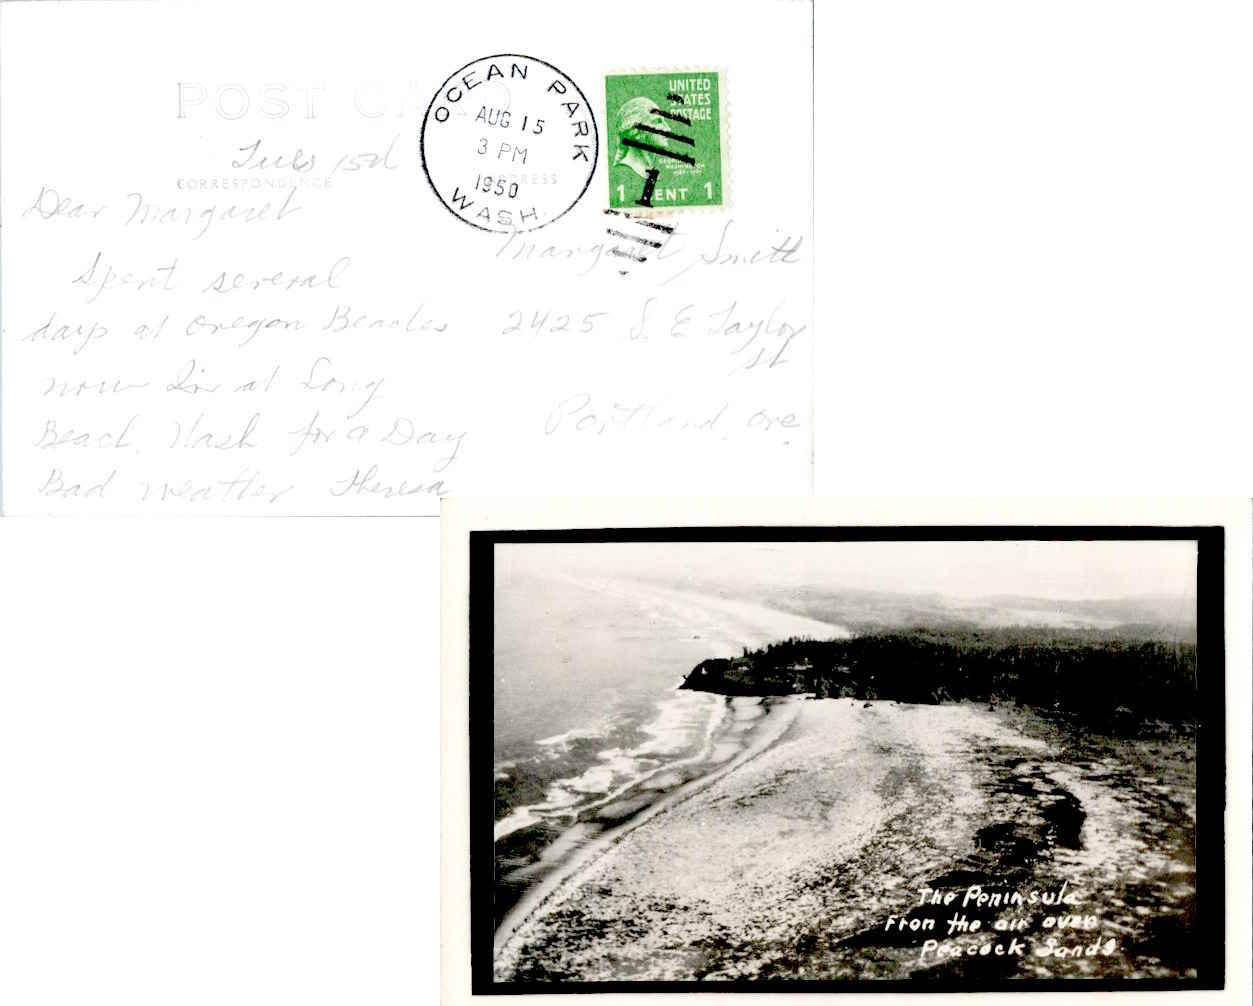 POST CARD
OCEAN PARK
AUG 15
3 PM
1950
WASH.
UNITED
STATES
POSTAGE
GEORGE
WASHINGTON
1 CENT 1
1
CORRESPONDENCE
ADDRESS
Tues 15th
Dear Margaret
Spent several
days at Oregon Beaches
now I'm at Long
Beach, Wash for a Day
Bad weather Theresa
Margaret Smith
2425 S. E Taylor
St
Portland, Ore.
The Peninsula
From the air over
Peacock Sands.